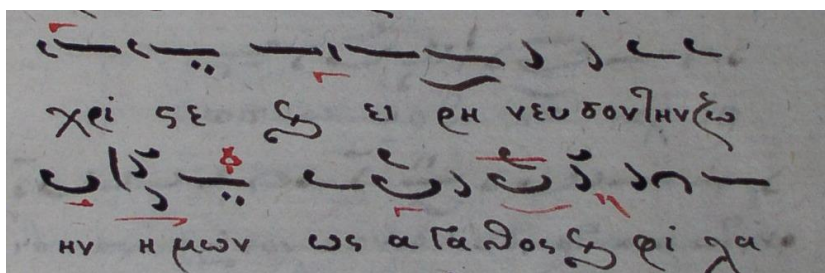 χρι ϛε ϗ ει ρη νευσον την ζω
ην ημων ως αγαθος ϗ φι λα